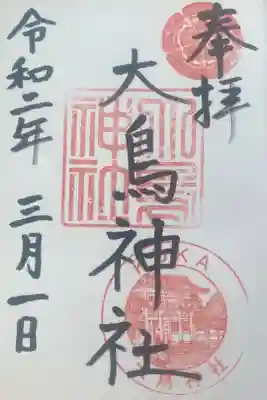 奉拝
大鳥神社
令和二年 三月一日